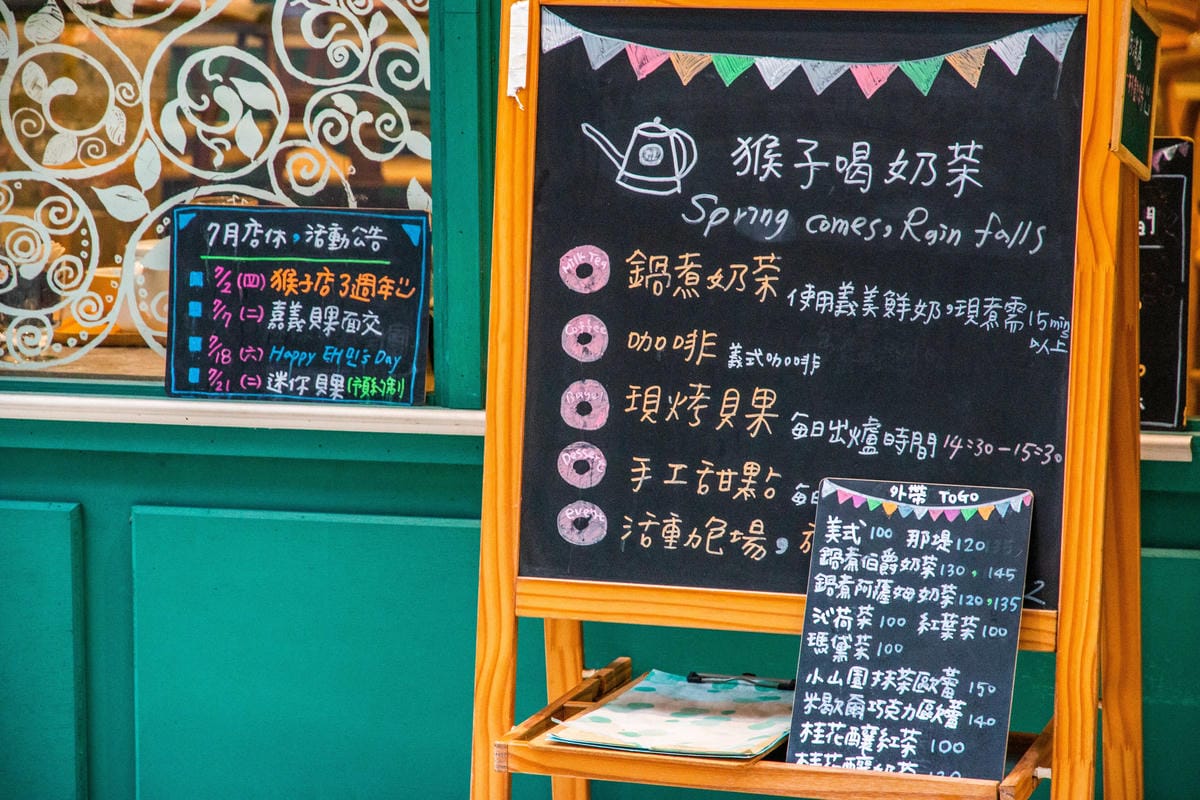 7月店休，活動公告
7/2 (四) 猴子店3週年
7/7 (二) 嘉義貝果面交
7/18 (六) Happy EMQI's Day
7/21 (二) 迷你貝果(預約制)
猴子喝奶茶
Spring comes, Rain falls
Milk Tea 鍋煮奶茶 使用義美鮮奶，現煮需15min以上
Coffee 咖啡 義式咖啡
Bagel 現烤貝果 每日出爐時間 14:30-15:30
Dessert 手工甜點 每日
Event 活動包場，
外帶 TOGO
美式 100 那堤 120
鍋煮伯爵奶茶 130，145
鍋煮阿薩姆奶茶 120，135
沁荷茶 100 紅葉茶 100
瑪黛茶 100
小山園抹茶歐蕾 150
米歇爾巧克力歐蕾 140
桂花釀紅茶 100
桂花釀奶茶